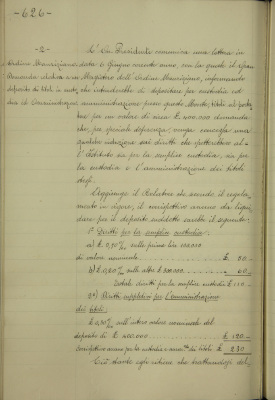 -626-
-2-
L' On. Presidente comunica una lettera in
data 6 Giugno corrente anno, con la quale il Gran
Magistero dell'Ordine Mauriziano, informando
che intenderebbe di depositare per custodia ed
amministrazione presso questo Monte, titoli al porta-
tore per un valore di circa £ 400.000 domanda
che, per speciale deferenza venga consentita una
qualche riduzione sui diritti che spetterebbero al-
l'Istituto sia per la semplice custodia, sia per
la custodia e l'amministrazione dei titoli
stessi.
Soggiunge il Relatore che secondo il regola-
mento in vigore, il corrispettivo annuo da liqui-
dare per il deposito suddetto sarebbe il seguente:
1° Diritti per la semplice custodia:
a) £ 0,50‰ sulle prime lire 100.000
di valore nominale £ 50.-
b) £ 0,20‰ sulle altre £ 300.000 " 60.-
Totale diritti per la semplice custodia £ 110.-
2°) Diritti suppletivi per l'amministrazione
dei titoli:
£ 0,30‰ sull'intero valore nominale del
deposito di £ 400.000 £ 120.-
Corrispettivo annuo per la custodia e amm.ne dei titoli £ 230.-
Ciò stante egli ritiene che trattandosi del-